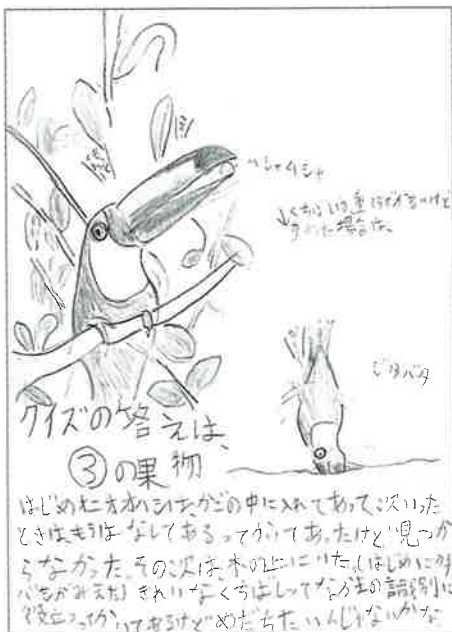 ムシャムシャ
ジタバタ
クイズの答えは、
③の果物
はじめオニオオハシは、かごの中に入れてあって、次いった
ときはもうはなしてあるってかいてあったけど見つか
らなかった。その次は木の上にいた。(はじめに
がみえた)きれいなくちばしってなかまの識別に
役立つってかいてあるけどめだちたいんじゃないかな